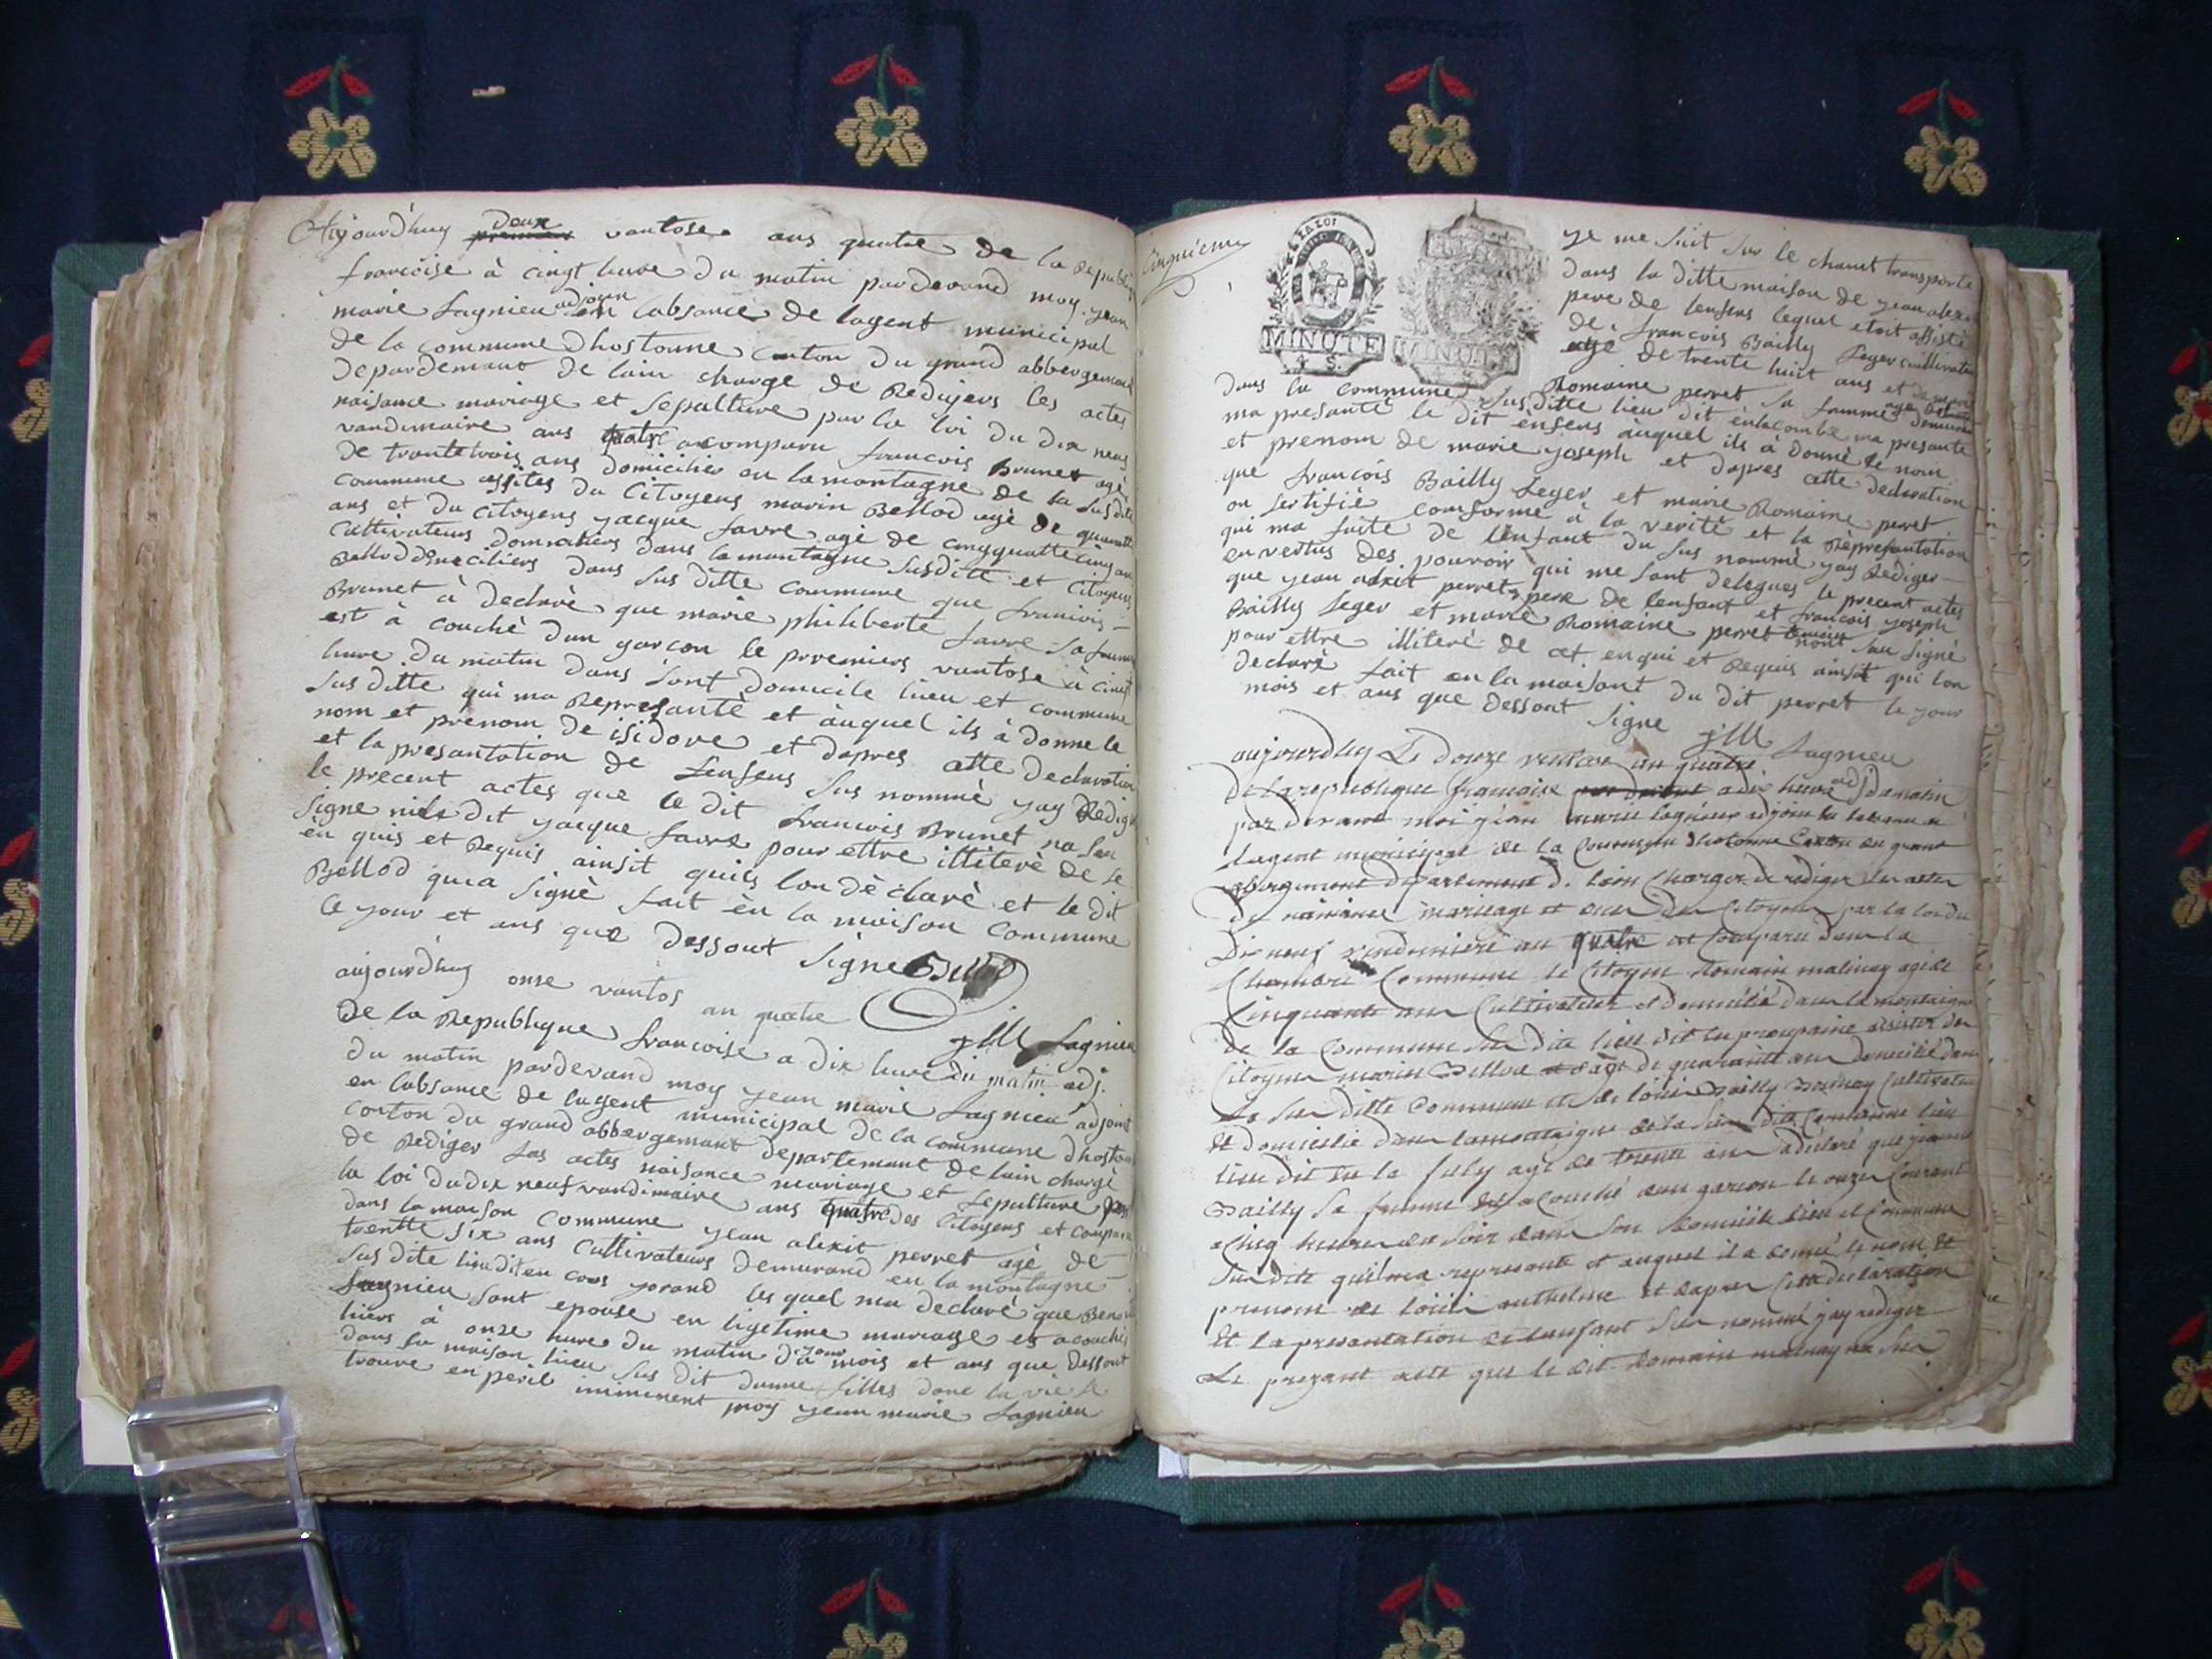 Aujourdhuy deux vantose ans quatre de la Republi
francoise à cingt hure du matin pardevand moy jean
marie Lagnieu adjoin en labsance de lagent municipal
de la commune dhostonne conton du grand abbergemend
depardemant de lain charge de Redigers les actes
naisance mariage et sepulture par la loi du dix neuf
vandimaire ans quatre a comparu francois Brunet agé
de trantetrois ans domicilier en la montagne de la susdite
commune assites du Citoyens marin Bellod agé de quarante
ans et du citoyens jacque favre agé de cinqquattecinq ans
cultivateurs domiciliers dans la montagne susditte et Citoyens
Bellod domiciliers dans sus ditte commune que francois
Brunet à declarè que marie philiberte favre sa famme
est à couché dun garcon le premiers vantose à cinqt
hure du matin dans sont domicile lieu et commune
sus ditte qui ma Represantè et auquel ils à donne le
nom et prenom de isidore et dapres cette declaration
et la presantation de lenfens sus nommè jay Redige
le precent actes que le dit francois Brunet na seu
signe ni le dit jacque favre pour ettre illiterè de ce
en quis et Requis ainsit quils lon dèclarè et le dit
Bellod qui a signè fait èn la maison commune
le jour et ans que dessout signe Bellod
jM Lagnieu
adj.
aujourdhuy onse vantos an quatre
de la Republique francoise a dix hure du matin
du matin pardevand moy jean marie Lagnieu adjoint
en labsance de lagent municipal de la commune dhostonne
conton du grand abbergemant departemant de lain chargè
de Rediger les actes naisance mariage et sepulture par
la loi du dix neuf vandimaire ans quatre des Citoyens et compara
dans la maison commune jean alexit perret agè de
trentte six ans cultivateurs demurand en la montagne
sus dite lieu dit en cous jorand les quel ma declarè que Benoi
Lagnieu sont epouse en ligetime mariage est acouché
hiers à onse hure du matin du jour mois et ans que dessout
dans la maison lieu sus dit dunne filles donc la vie se
trouve en peril imminent moy jean marie Lagnieu
Cinquieme
LA LOI
MINUTE
4 S.
MINUTE
4 S.
je me suit sur le chanct transporte
dans la ditte maison de jean alexi
pere de lenfens lequel etoit assistè
de francois Bailly Leger cultivateu
age de trente huit ans et demurant
dans la commune susditte Romaine perret sa famme age de
ma presantè le dit enfens auquel ils à donnè le nom
et prenom de marie joseph et dapres cette declaration
que francois Bailly Leger et marie Romaine perret
on sertifiè comforme à la veritè et la Représantation
qui ma faite de lenfant du sus nommè jay Rediger
en vertus des pouvoir qui me sont delegues le precent actes
que jean alexit perret pere de lenfant et francois joseph
Bailly Leger et marie Romaine perret nont seu signè
pour ettre illiterè de cet enqui et Requis ainsit qui lon
declarè fait en la maisont du dit perret le jour
mois et ans que dessout signe jM Lagnieu
adj
aujourdhuy Le douze ventose an quatre
De la republique francaise a dix heure du matin
par devant moi jean marie lagnieu adjoint en labsance de
Lagent municipal de la Commune dhotonne Canton du grand
abergement departement de lain Charger de rediger les actes
De naisance mariage et deces des Citoyens par la loi du
Dix neuf vendemiere an quatre est Comparu dans la
Chambre Commune le Citoyen Romain malinay agé de
Cinquante ans Cultivateur et domicilié dans la montaigne
de la Commune sus dite lieu dit en proupaine assister du
Citoyen marin Bellod agé de quarante ans domicilié dans
La sus ditte Commune et de louis Bailly Cultivateur
et domicilié dans la montaigne de la sus dite Commune lieu
lieu dit en la fuly agé de trente ans a déclaré que jeanne
Bailly sa femme est acouché dun garcon le onze Courant
a Cinq heures du soir dans son domicile lieu et Commune
sus dite quil ma represanté et auquel il a donné le nom et
prenom de louis anthelme et dapres Cette declaration
Et la presentation de lenfant sus nommé jay rediger
Le present acte que le dit Romain malinay na seu